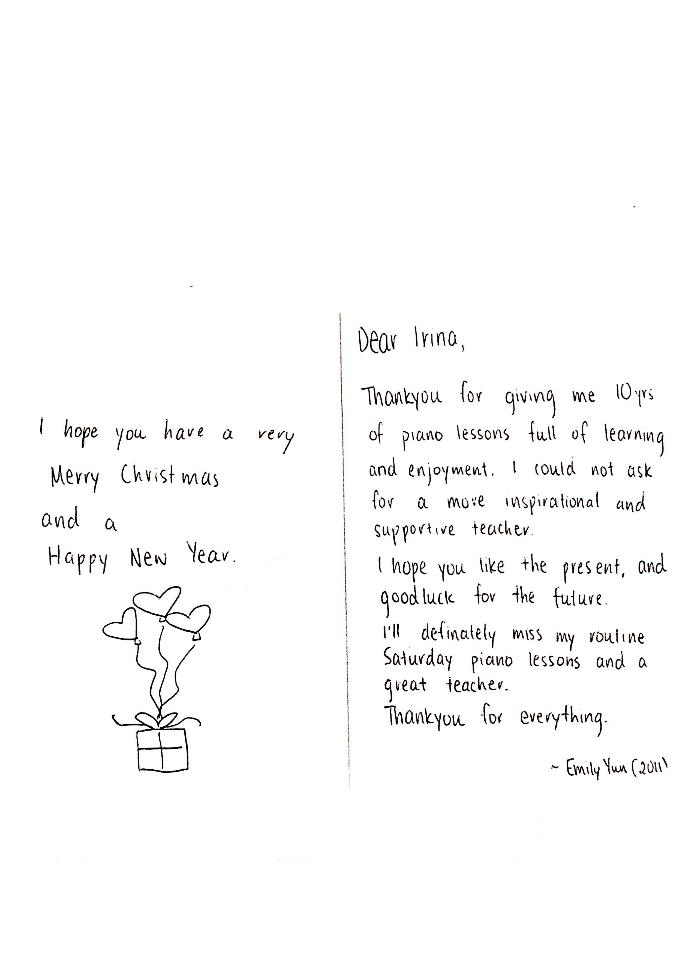 I hope you have a very
Merry Christmas
and a
Happy New Year.
Dear Irina,
Thankyou for giving me 10yrs
of piano lessons full of learning
and enjoyment. I could not ask
for a more inspirational and
supportive teacher.
I hope you like the present, and
goodluck for the future.
I'll definately miss my routine
Saturday piano lessons and a
great teacher.
Thankyou for everything.
~ Emily Yun (2011)